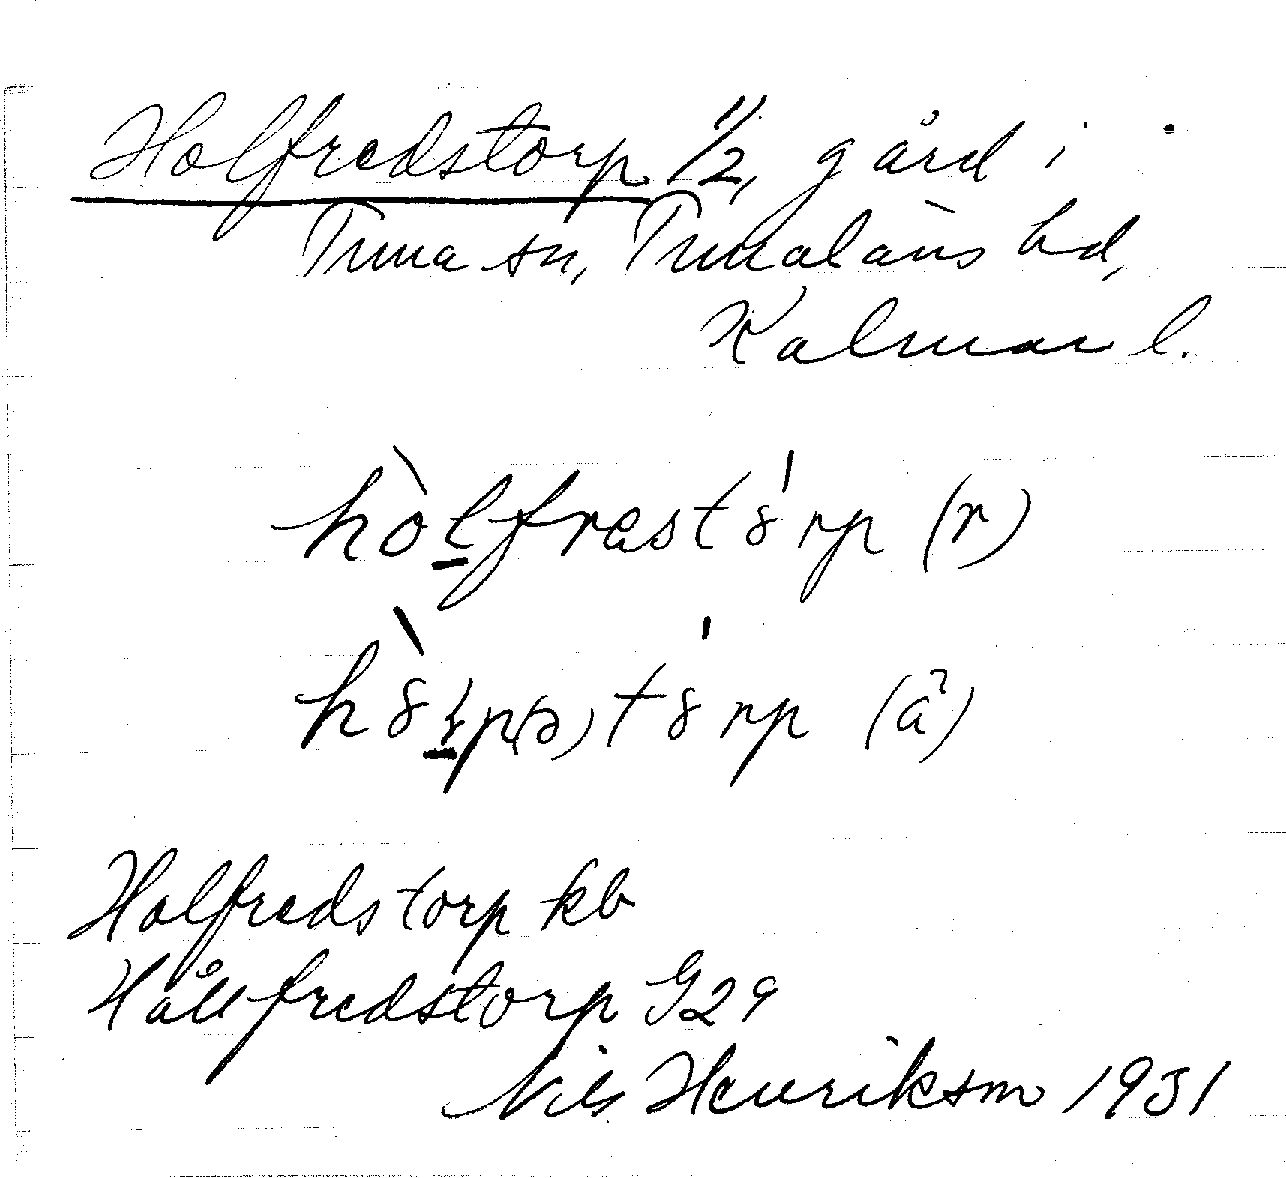 Holfredstorp 1/2, gård i
Tuna sn, Tunaläns hd,
Kalmar l.
hòlfrast8́rp (r)
h8̀ɽp(ə)t8́rp (ä)
Holfredstorp kb
Hållfredstorp G29
Nils Henrikson 1931